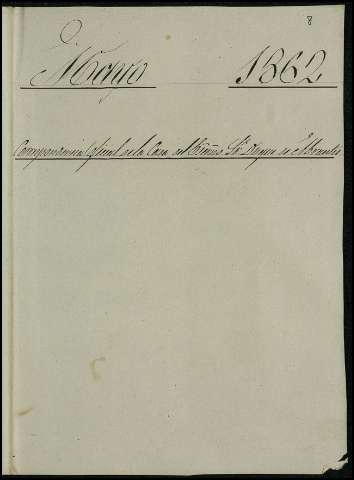 8
Mayo 1862
Correspondencia Oficial de la Casa del Excmo. Sr. Duque de Abrantes